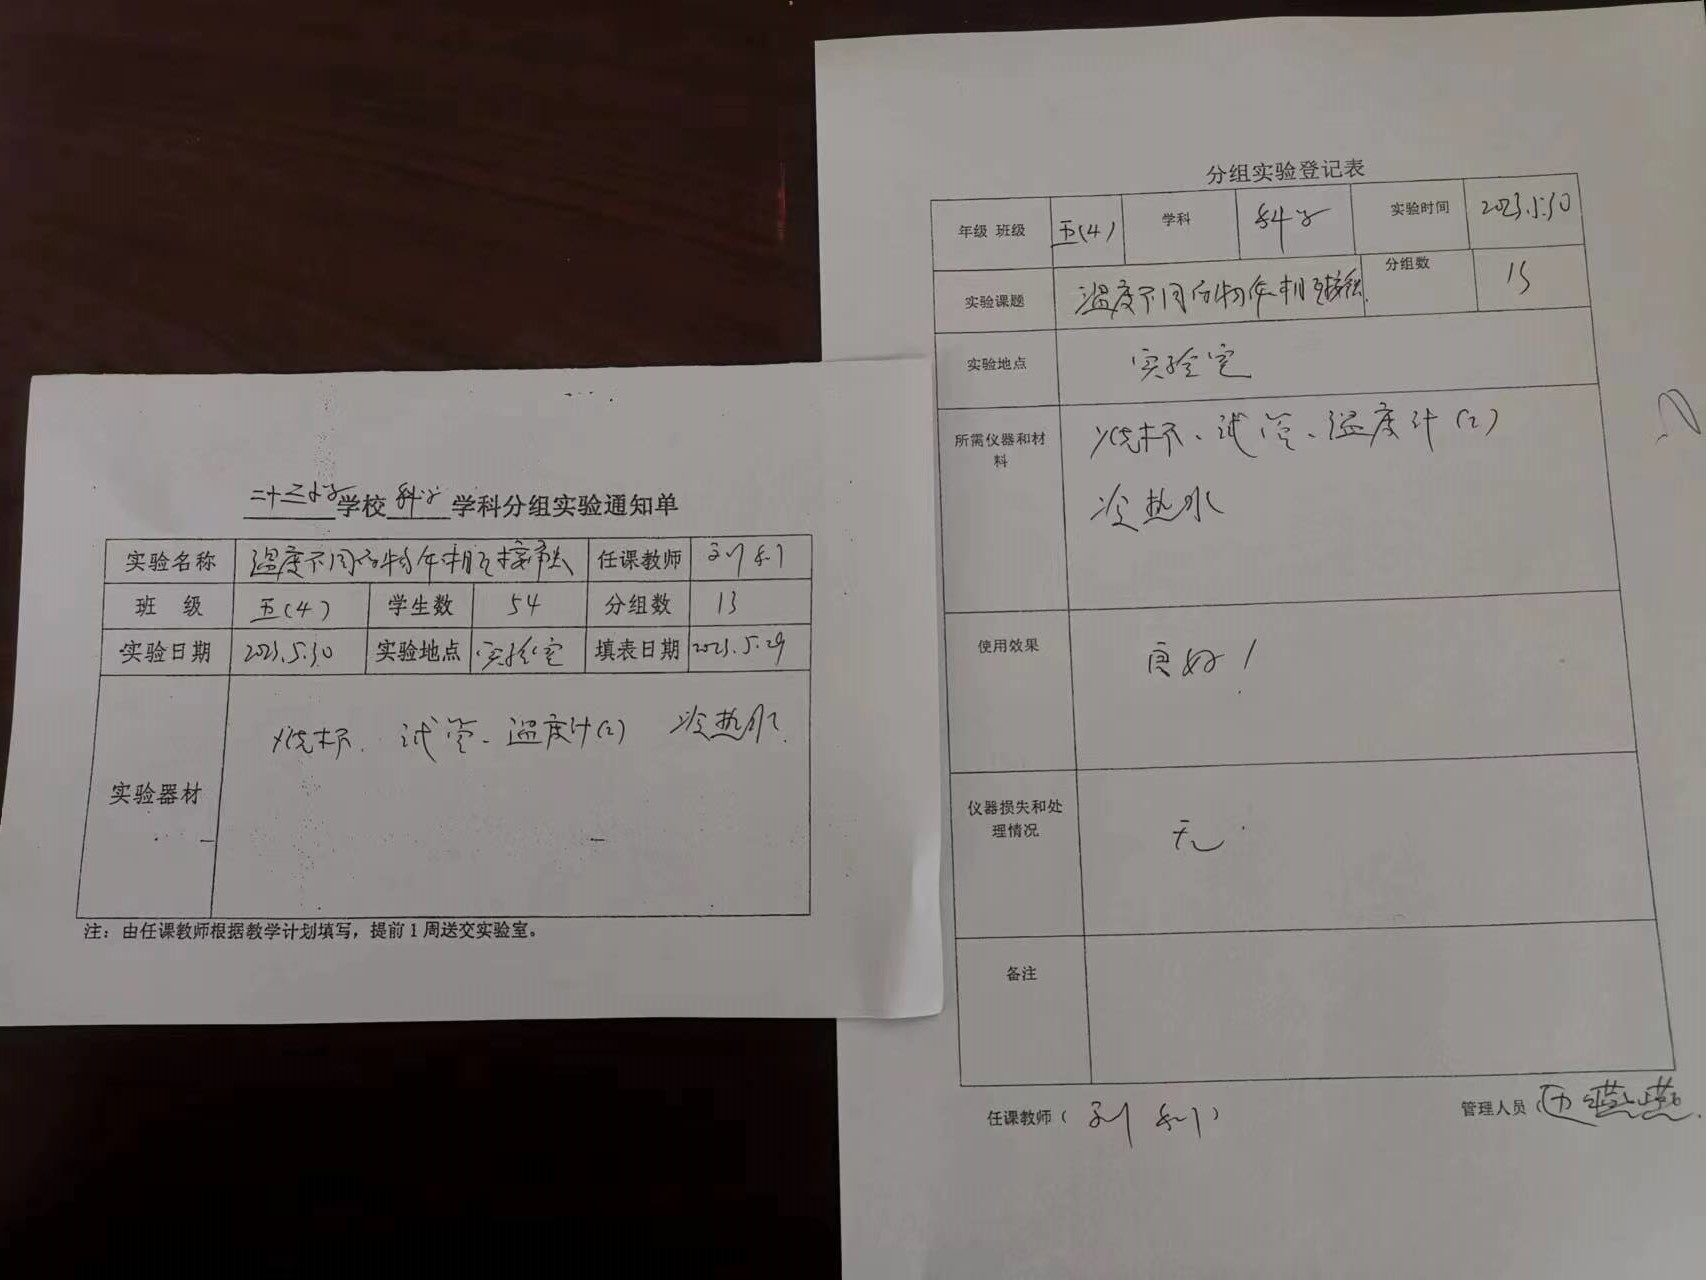 二十三小学学校科学学科分组实验通知单
实验名称 温度不同的物体相互接触 任课教师 刘利
班 级 五(4) 学生数 54 分组数 13
实验日期 2023.5.30 实验地点 实验室 填表日期 2023.5.29
实验器材 烧杯、试管、温度计(2) 冷热水
注：由任课教师根据教学计划填写，提前1周送交实验室。
分组实验登记表
年级 班级 五(4) 学科 科学 实验时间 2023.5.30
实验课题 温度不同的物体相互接触 分组数 13
实验地点 实验室
所需仪器和材 烧杯、试管、温度计(2)
料
冷热水
使用效果 良好！
仪器损失和处
理情况 无
备注
任课教师（刘利） 管理人员（